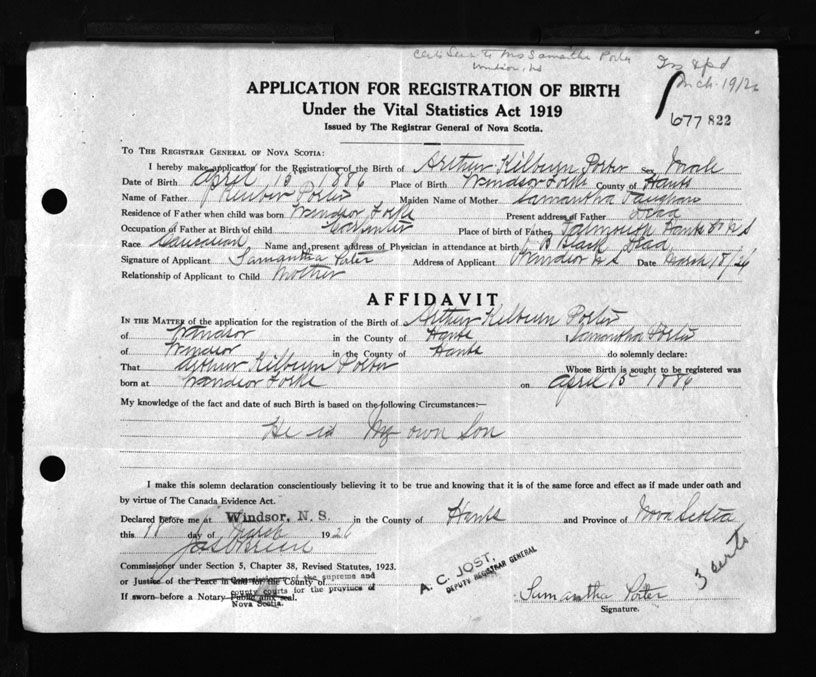 Mrs Samantha Porter
Windsor, NS
Mch. 19/26
APPLICATION FOR REGISTRATION OF BIRTH
Under the Vital Statistics Act 1919
Issued by The Registrar General of Nova Scotia.
677 822
TO THE REGISTRAR GENERAL OF NOVA SCOTIA:
I hereby make application for the Registration of the Birth of Arthur Kilburn Porter Sex Male
Date of Birth April 15 1886 Place of Birth Windsor Forks County of Hants
Name of Father Reuben Porter Maiden Name of Mother Samantha Vaughan
Residence of Father when child was born Windsor Forks Present address of Father Dead
Occupation of Father at Birth of child Carpenter Place of birth of Father Falmouth Hants Co N S
Race Caucasian Name and present address of Physician in attendance at birth Black Dead
Signature of Applicant Samantha Porter Address of Applicant Windsor N S Date March 18/26
Relationship of Applicant to Child Mother
AFFIDAVIT
IN THE MATTER of the application for the registration of the Birth of Arthur Kilburn Porter
of Windsor in the County of Hants , Samantha Porter
of Windsor in the County of Hants do solemnly declare:
That Arthur Kilburn Porter Whose Birth is sought to be registered was
born at Windsor Forks on April 15 1886
My knowledge of the fact and date of such Birth is based on the following Circumstances:—
He is My own Son
I make this solemn declaration conscientiously believing it to be true and knowing that it is of the same force and effect as if made under oath and
by virtue of The Canada Evidence Act.
Declared before me at Windsor, N. S. in the County of Hants and Province of Nova Scotia
this 18 day of March 1926
Commissioner under Section 5, Chapter 38, Revised Statutes, 1923.
or Justice of the Peace in and for the County of
Commissioner of the supreme and
county courts for the province of
If sworn before a Notary Public affix seal.
Nova Scotia.
A. C. JOST,
DEPUTY REGISTRAR GENERAL
3 certs
Samantha Porter
Signature.